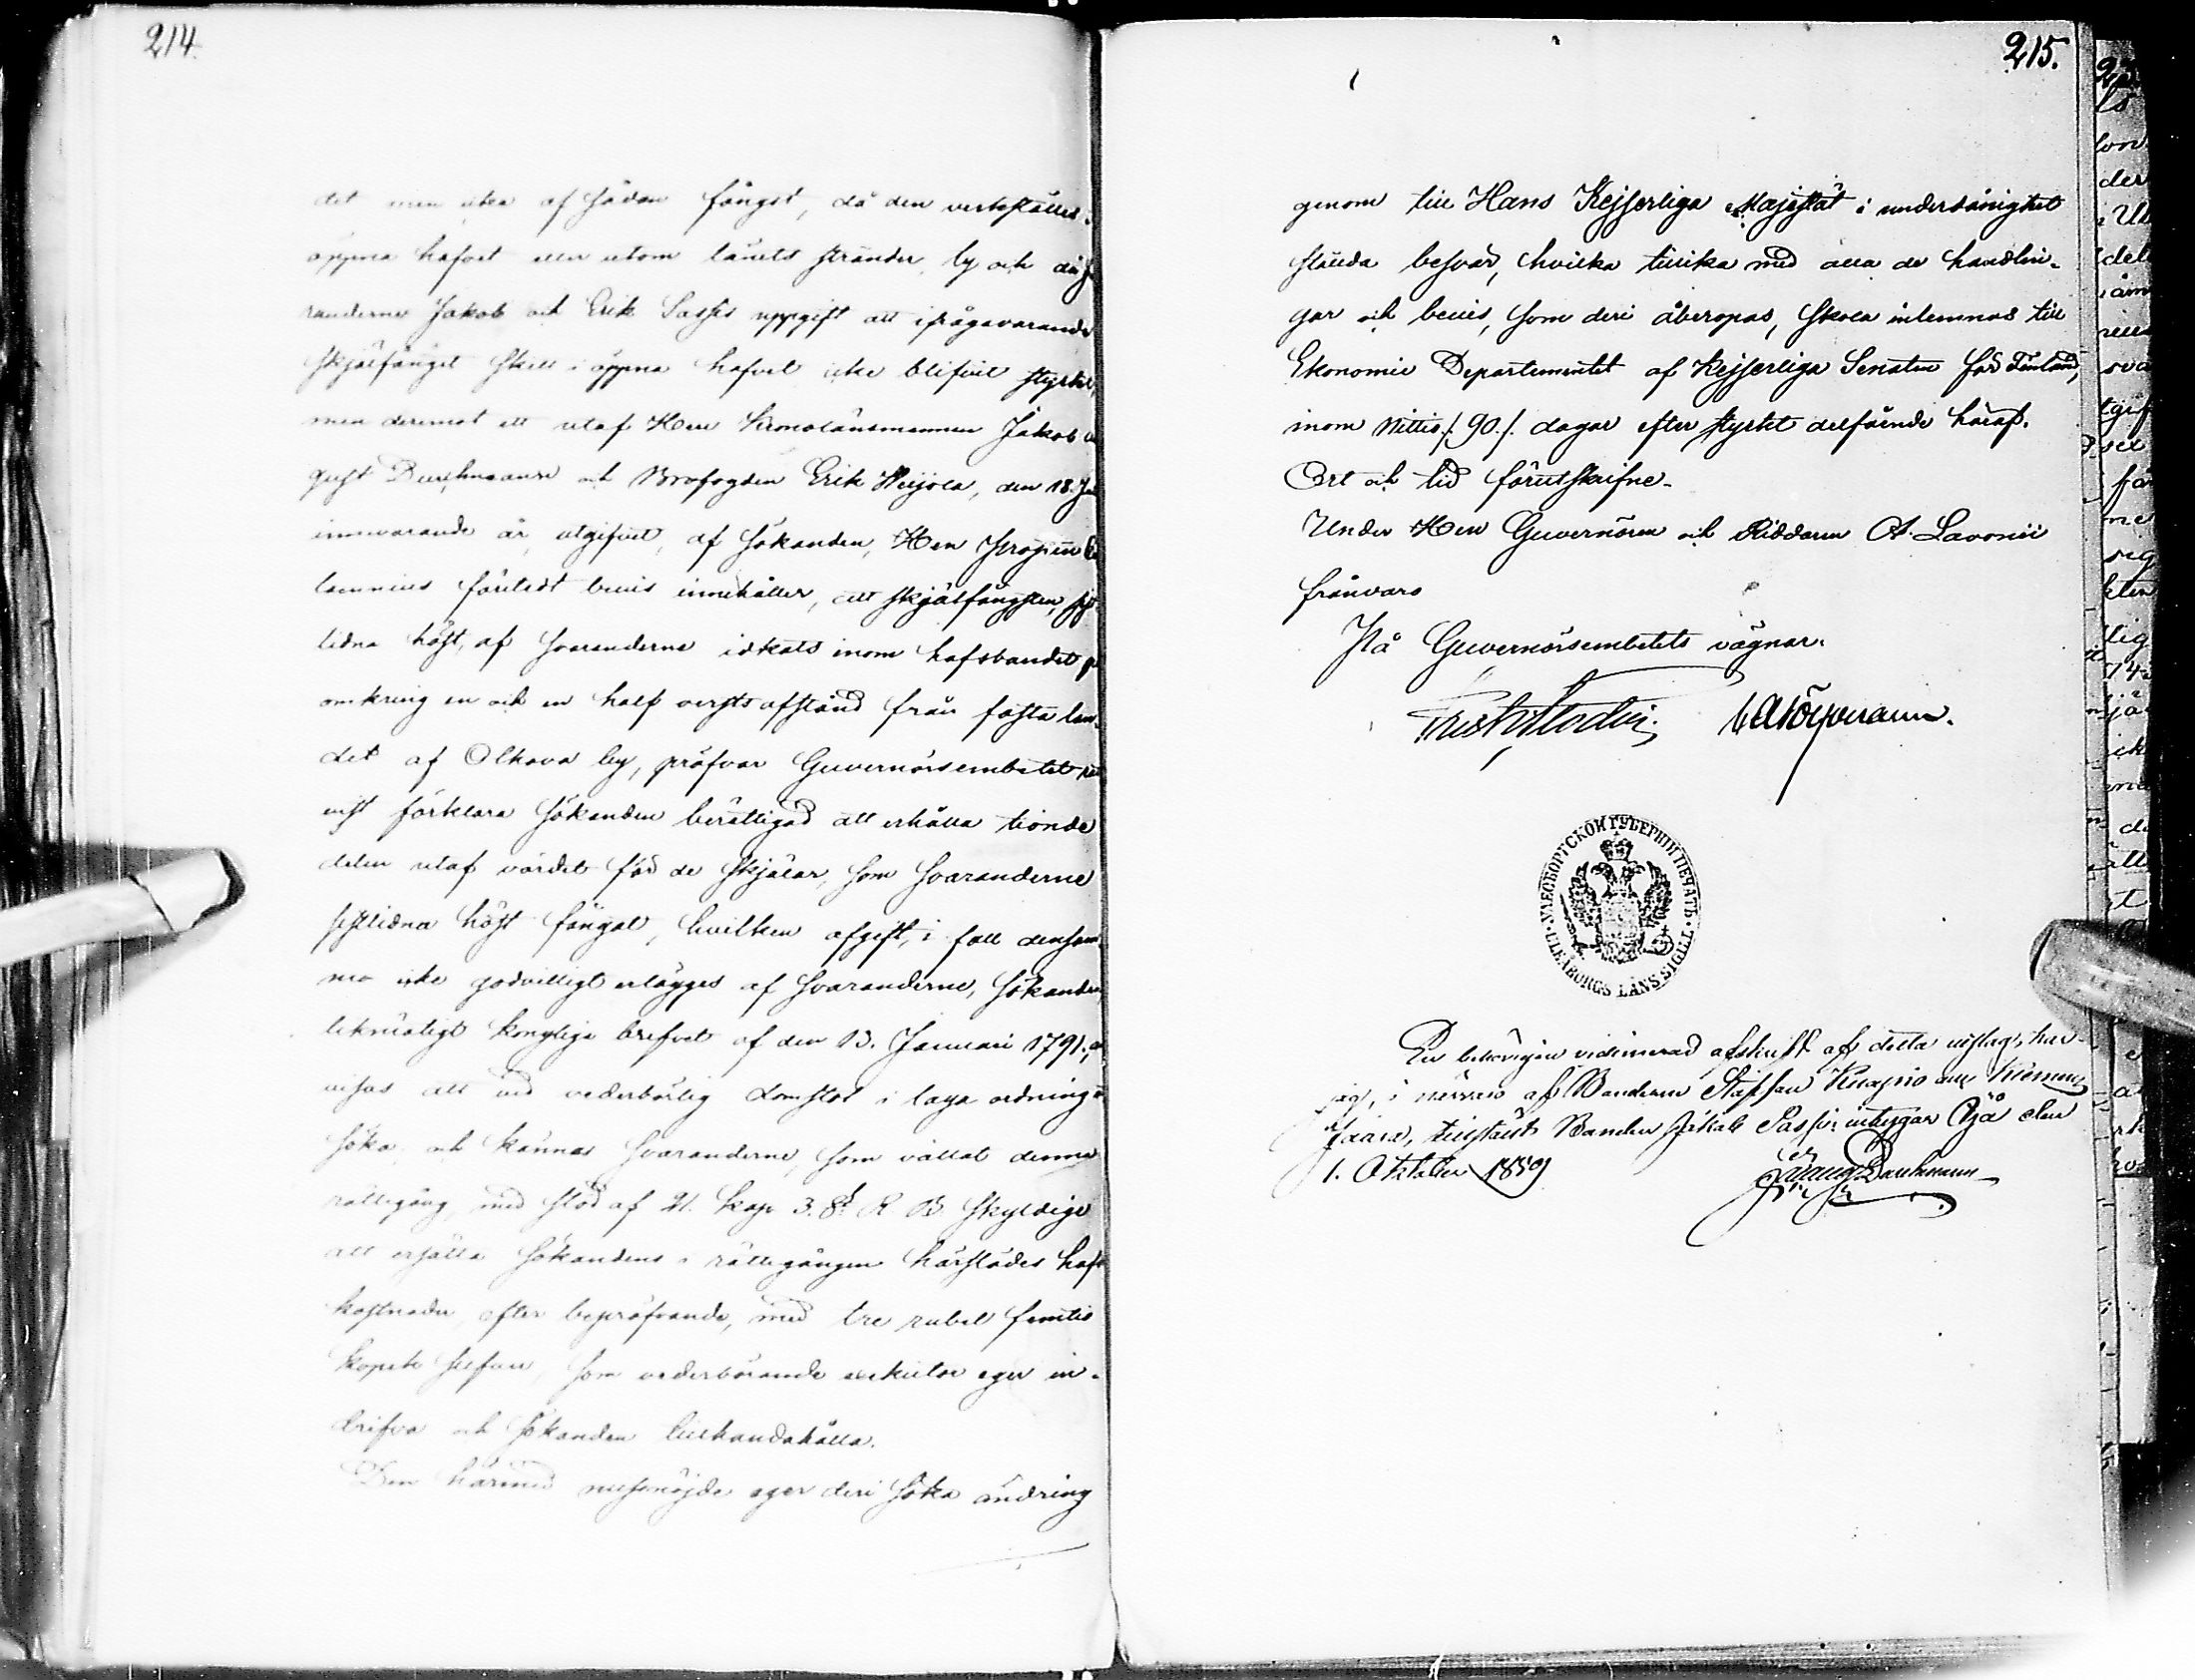 214.
det men icke af sådan fångst, då den verkställes i
öppna hafvet eller utom länets stränder, ty och då
randerne Jakob och Erik Sassis uppgift att ifrågavarande
skjälfånget skett i öppna hafvet icke blifvit styrkt,
men deremot ett utaf Herr Kronolänsmannen Jakob
gust Durchmann och Brofogden Erik Heijola, den 18.
innevarande år, utgifvet, af sökanden, Herr
lamnius företedt bevis innehåller, att skjälfångsten,
lidna höst, af svaranderne idkats inom hafsbandet
omkring en och en half versts afstånd från fasta lan-
det af Olhava by, pröfvar Guvernörsembetet
vist förklara sökanden berättigad att erhålla tionde
delen utaf värdet för de skjälar, som svaranderne
sistlidna höst fångat, hvilken afgift, i fall densam-
ma icke godvilligt erlägges af svaranderne, sökanden
likmätigt kongliga brefvet af den 13. Januari 1791,
visas att vid vederbörlig domstol i laga ordning
söka och kännas svaranderne, som vållat denna
rättegång, med stöd af 21. Kap 3. § R B. skyldige
att ersätta sökandens i rättegången härstädes haf-
kostnader efter bepröfvande, med tre rubel femtio
kopek silfver, som vederbörande exekutor eger in-
drifva och sökanden tillhandahålla.
Den härmed missnöjde eger deri söka ändring
215.
genom till Hans Kejserliga Majestät i underdånighet
stälda besvär, hvilka tillika med alla de handlin-
gar och bevis, som deri åberopas, skola inlemnas till
Ekonomie Departementet af Kejserliga Senaten för Finland,
inom nittio /: 90 :/ dagar efter styrkt delfående häraf.
Ort och tid förutskrifne.
Under Herr Guvernören och Riddaren A. Lavonii
frånvaro
På Guvernörsembetets vägnar.
УЛЕАБОРГСКОЙ ГУБЕРНІИ ПЕЧАТЬ
ULEÅBORGS LÄNS SIGILL
En behörigen vidimerad afskrift af detta utslag, har
jag, i närvaro af Bonderne Staffan Knaapio
tillstält Bonden Jakob Sassi: intygar Ijå den
1. Oktober 1859